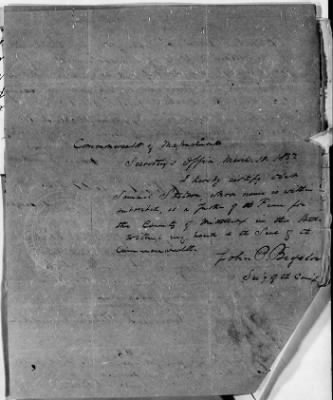 Commonwealth of Massachusetts
Secretary's Office March
I hereby certify that
Samuel whose name is within
is a Justice of the Peace for
the County of Middlesex in this
Witness my hand & the Seal of the
Commonwealth.
John P. Bigelow
Sec'y of the Com